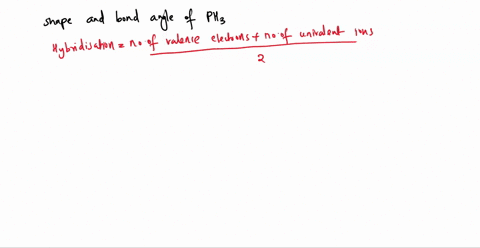 shape and bond angle of PH3
Hybridisation = no of valence electrons + no. of univalent ions
2